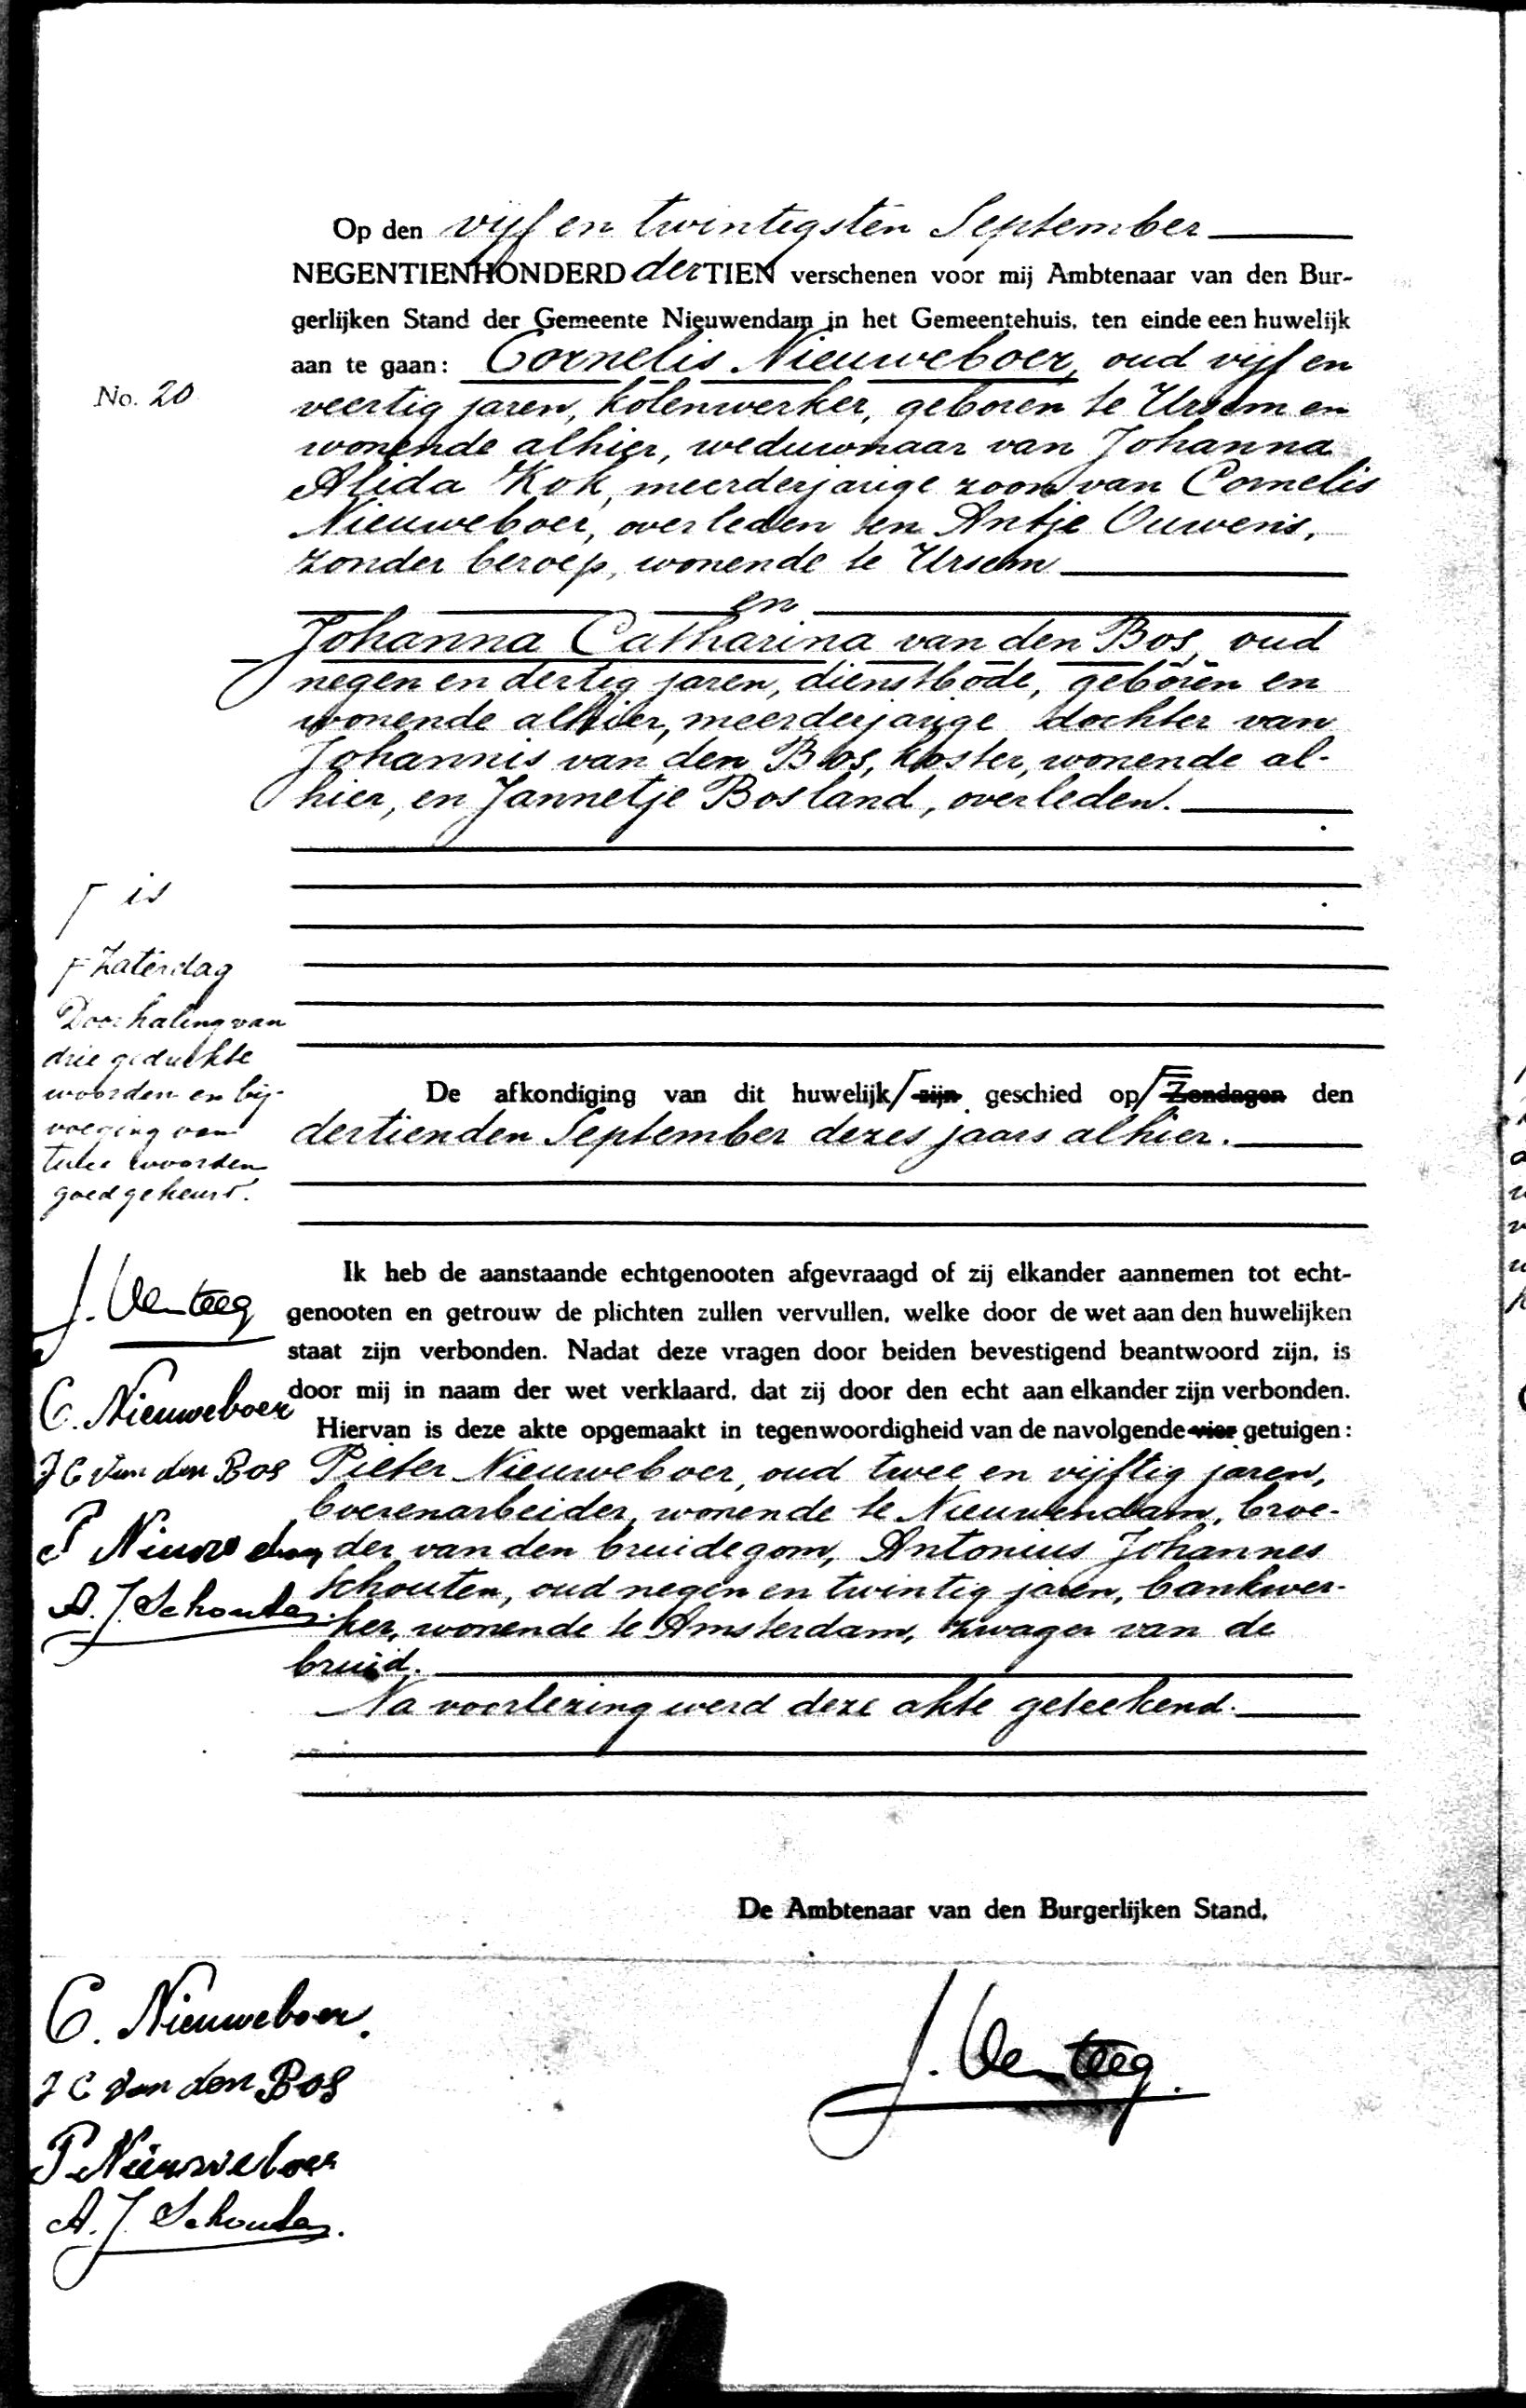 Op den vijf en twintigsten September
NEGENTIENHONDERD derTIEN verschenen voor mij Ambtenaar van den Bur-
gerlijken Stand der Gemeente Nieuwendam in het Gemeentehuis, ten einde een huwelijk
aan te gaan: Cornelis Nieuweboer, oud vijf en
No. 20
veertig jaren, kolenwerker, geboren te Ursem en
wonende alhier, weduwnaar van Johanna
Alida Kok, meerderjarige zoon van Cornelis
Nieuweboer, overleden en Antje Ouwens,
zonder beroep, wonende te Ursem
en
Johanna Catharina van den Bos, oud
negen en dertig jaren, dienstbode, geboren en
wonende alhier, meerderjarige dochter van
Johannis van den Bos, koster, wonende al-
hier, en Jannetje Bosland, overleden.
is
Zaterdag
Doorhaling van
drie gedrukte
woorden en bij-
voeging van
twee woorden
goedgekeurd.
De afkondiging van dit huwelijk zijn geschied op Zondagen den
dertienden September dezes jaars alhier.
Ik heb de aanstaande echtgenooten afgevraagd of zij elkander aannemen tot echt-
genooten en getrouw de plichten zullen vervullen, welke door de wet aan den huwelijken
staat zijn verbonden. Nadat deze vragen door beiden bevestigend beantwoord zijn, is
door mij in naam der wet verklaard, dat zij door den echt aan elkander zijn verbonden.
Hiervan is deze akte opgemaakt in tegenwoordigheid van de navolgende vier getuigen:
Pieter Nieuweboer, oud twee en vijftig jaren,
boerenarbeider, wonende te Nieuwendam, broe-
der van den bruidegom, Antonius Johannes
Schouten, oud negen en twintig jaren, bankwer-
ker, wonende te Amsterdam, zwager van de
bruid.
Na voorlezing werd deze akte geteekend.
C. Nieuweboer
J C van den Bos
A. J. Schouten.
De Ambtenaar van den Burgerlijken Stand,
C. Nieuweboer.
J C van den Bos
P Nieuweboer
A. J. Schouten.